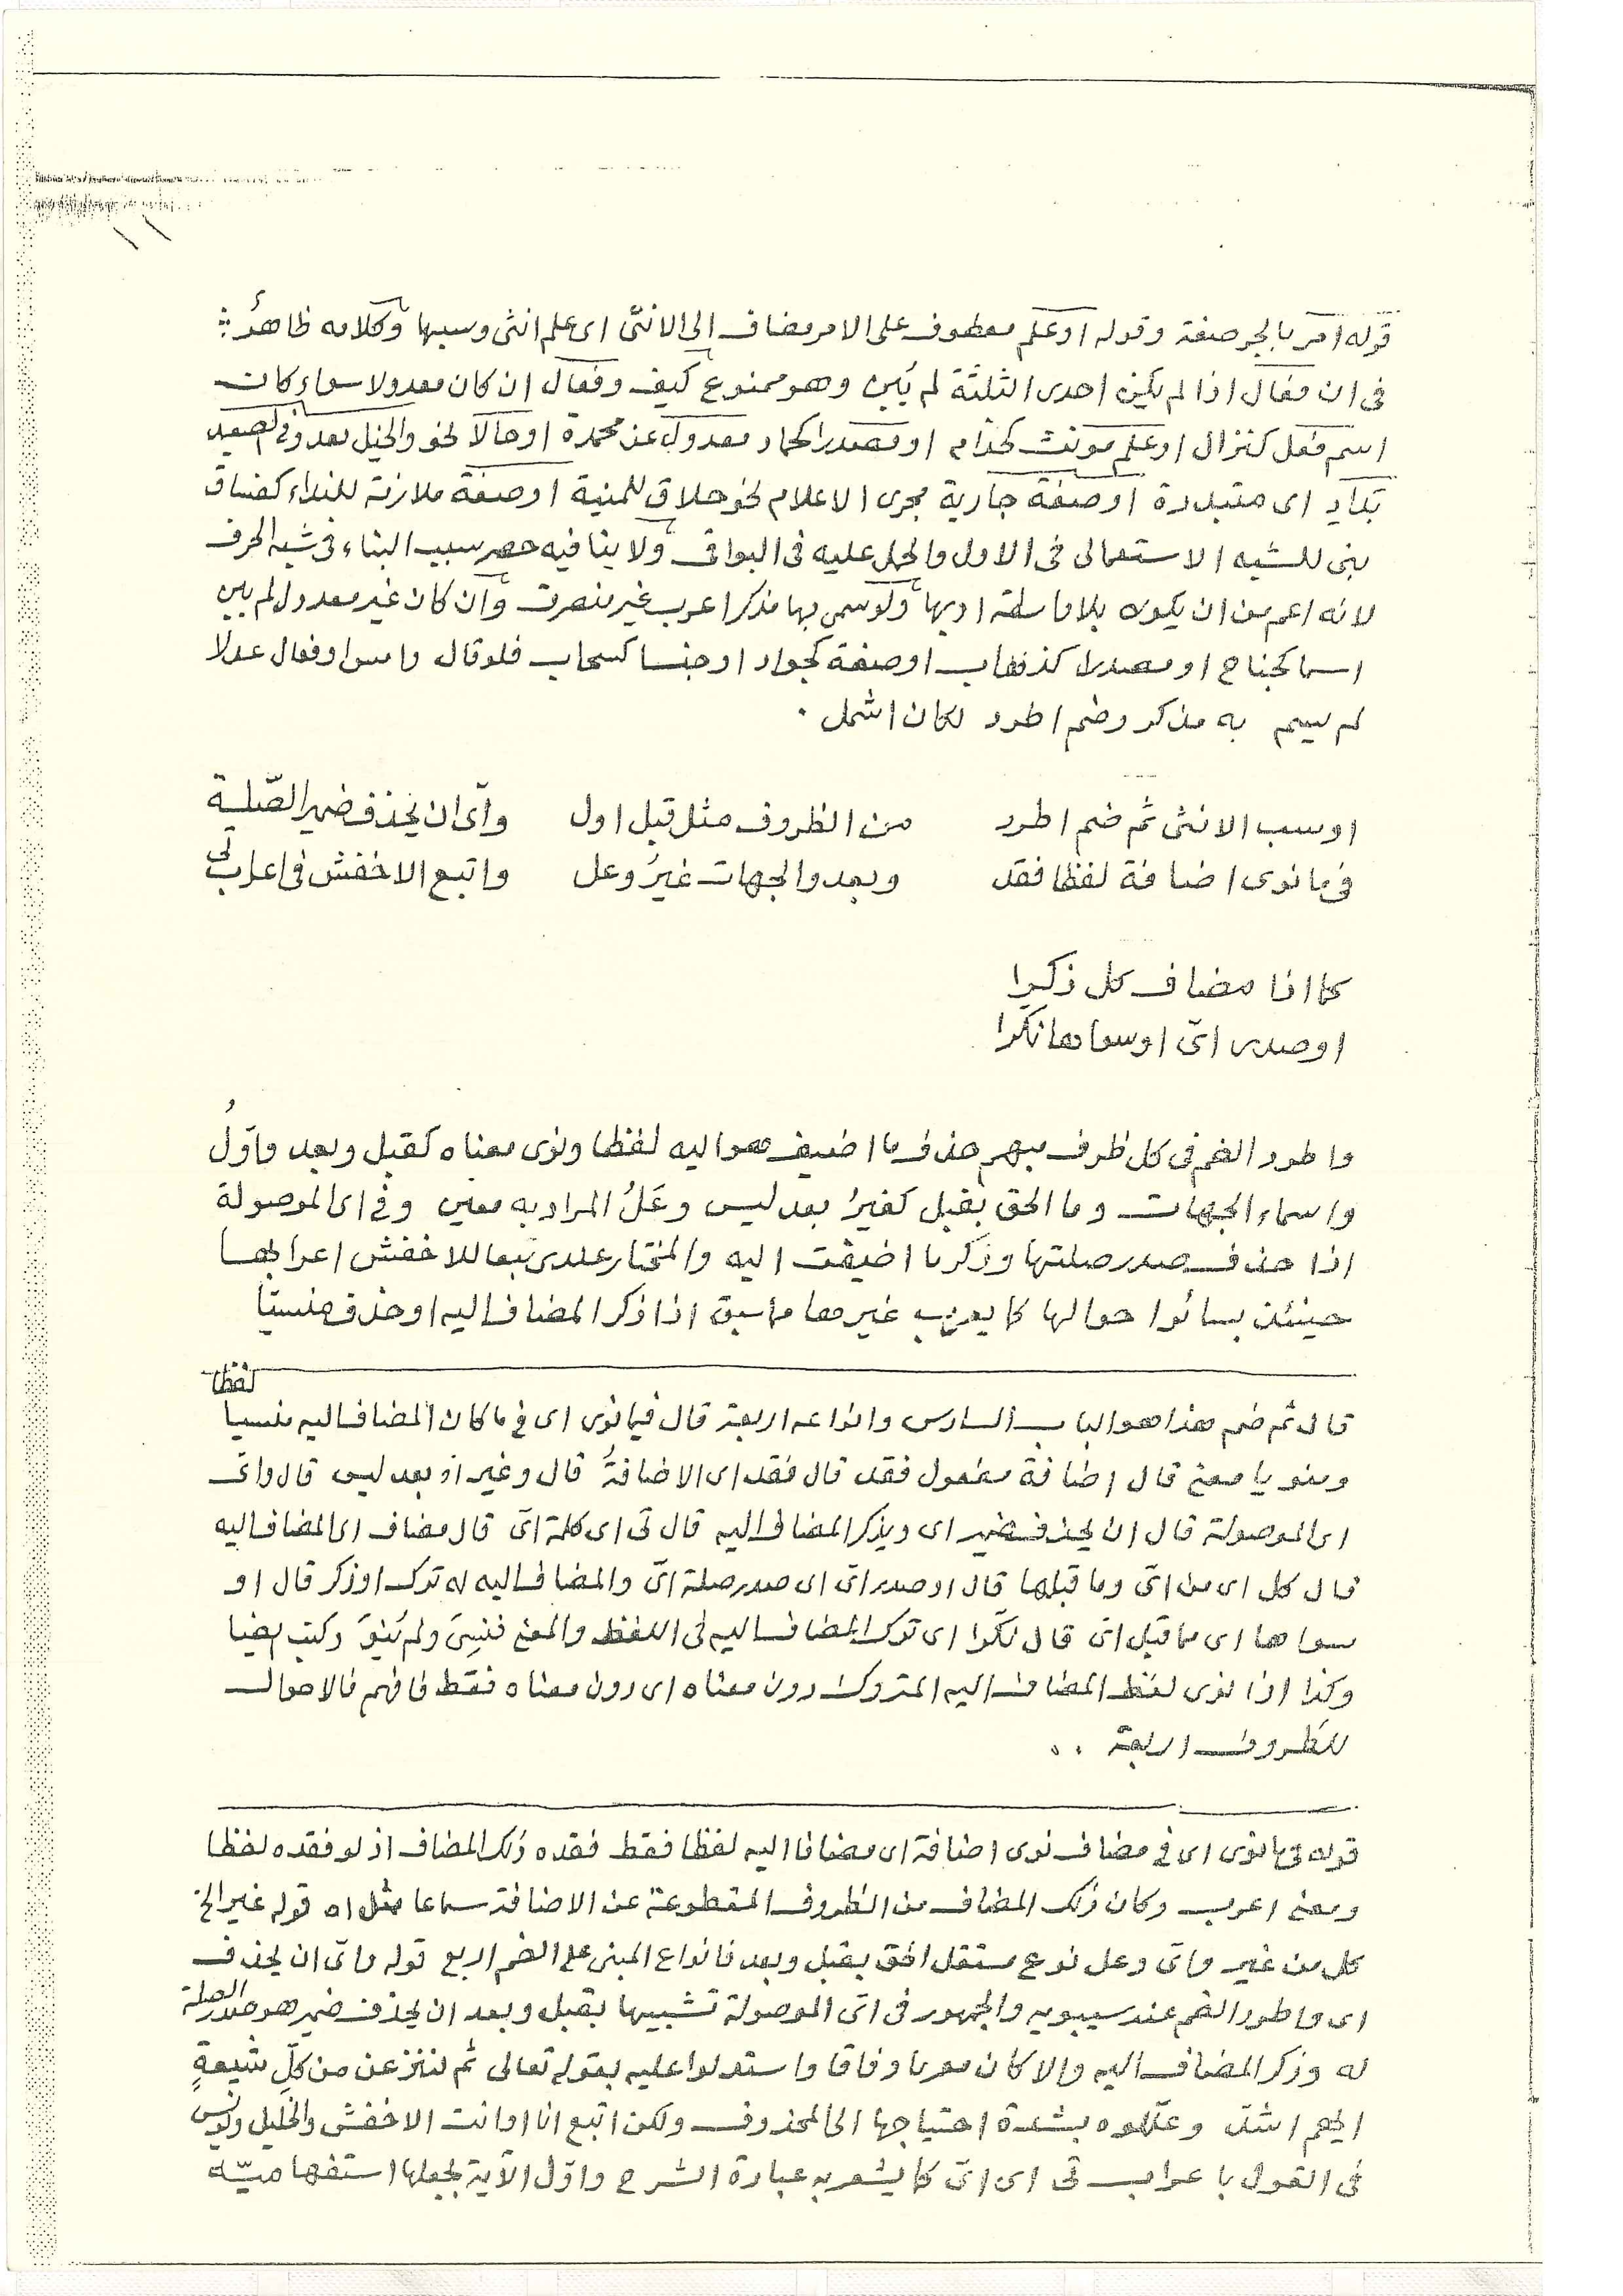 قوله امر بالجر صفة وقوله او علم معطوف على الامر مضاف الى الانثى اى علم انثى وسبها وكلامه ظاهر
فى ان فعال اذا لم يكن احدى الثلثة لم يبن وهو ممنوع كيف وفعال ان كان معدولا سواء كان
اسم فعل كنزال او علم مونث كحذام او مصدرا كحماد معدول عن محمدة او حالا نحو والخيل تعدو فى الصعيد
بداد اى متبددة او صفة جارية مجرى الاعلام نحو حلاق للمنية او صفة ملازمة للنداء كفساق
بنى للشبه الاستعمالى فى الاول والحمل عليه فى البواقى ولا ينافيه حصر سبب البناء فى شبه الحرف
لانه اعم من ان يكون بلا واسطة او بها ولو سمى بها مذكر اعرب غير منصرف وان كان غير معدول لم يبن
اسما كجناح او مصدرا كذهاب او صفة كجواد او جنسا كسحاب فلو قال وامس او فعال عدلا
لم يسم به مذكر وضم اطرد لكان اشمل .
او سب الانثى ثم ضم اطرد من الظروف مثل قبل اول واى ان يحذف ضمير الصلة
فى ما نوى اضافة لفظا فقد وبعد والجهات غير وعل واتبع الاخفش فى اعراب تى
كما اذا مضاف كل ذكرا
او صدر اى او سواها نكرا
واطرد الضم فى كل ظرف مبهم حذف ما اضيف هو اليه لفظا ونوى معناه كقبل وبعد واول
واسماء الجهات وما الحق بقبل كغير بعد ليس وعل المراد به معين وفى اى الموصولة
اذا حذف صدر صلتها وذكر ما اضيفت اليه والمختار عندى تبعا للاخفش اعرابها
حينئذ بسائر احوالها كما يعرب غيرها مما سبق اذا ذكر المضاف اليه او حذف منسيا
لفظا
قال ثم ضم هذا هو الباب السادس وانواعه اربعة قال فيما نوى اى فى ما كان المضاف اليه منسيا
ومنويا معنى قال اضافة مفعول فقد قال فقد اى الاضافة قال وغير اذ بعد ليس قال واى
اى الموصولة قال ان يحذف ضمير اى ويذكر المضاف اليه قال تى اى كلمة اى قال مضاف اى المضاف اليه
قال كل اى من اى وما قبلها قال او صدر اى اى صدر صلة اى والمضاف اليه له ترك او ذكر قال او
سواها اى مما قبل اى قال نكرا اى ترك المضاف اليه فى اللفظ والمعنى فنسى ولم ينو وكتب ايضا
وكذا اذا نوى لفظ المضاف اليه المتروك دون معناه اى دون معناه فقط فافهم فالاحوال
للظروف اربعة . .
قوله فى ما نوى اى فى مضاف نوى اضافة اى مضافا اليه لفظا فقط فقده ذلك المضاف اذ لو فقده لفظا
ومعنى اعرب وكان ذلك المضاف من الظروف المقطوعة عن الاضافة سماعا مثل اه قوله غير الخ
كل من غير واى وعل نوع مستقل الحق بقبل وبعد فانواع المبنى على الضم اربع قوله واى ان يحذف
اى واطرد الضم عند سيبويه والجمهور فى اى الموصولة تشبيها بقبل وبعد ان يحذف ضمير هو صدر الصلة
له وذكر المضاف اليه والا كان معربا وفاقا واستدلوا عليه بقوله تعالى ثم لننزعن من كلّ شيعةٍ
ايهم اشد وعللوه بشدة احتياجها الى المحذوف ولكن اتبع انا او انت الاخفش والخليل ويونس
فى القول باعراب تى اى اى كما يشعر به عبارة الشرح واوّل الآية بجعلها استفهاميّه